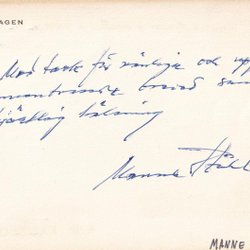 AGEN
Med tack för vänliga och upp
muntrande brev samt
hjärtlig hälsning
Manne
MANNE